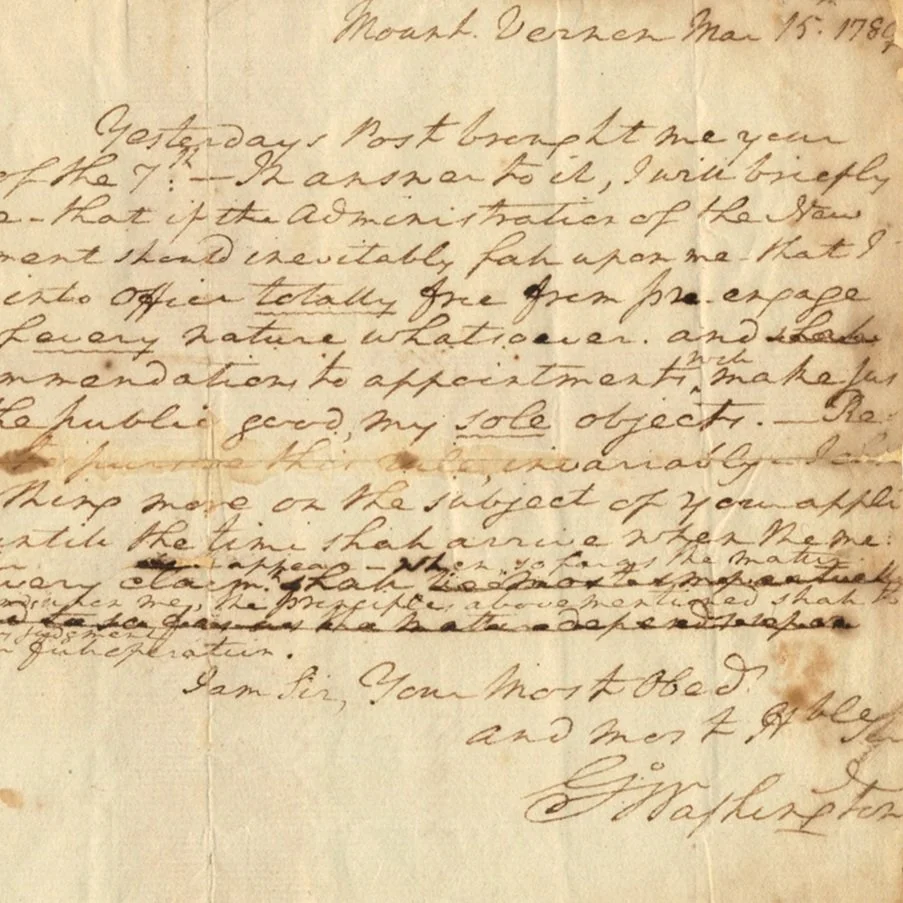 Mount Vernon Mar 15th 1789
Yesterdays Post brought me your
of the 7th: — In answer to it, I will briefly
e - that if the Administration of the New
ment should inevitably fall upon me - that I
into office totally free from pre-engage
f every nature whatsoever. and shall
mmendations to appointments will make jus
he public good, my sole objects. — Re
to pursue this rule, invariably I shall
thing more on the subject of your appli
until the time shall arrive when the me:
appear - when, so far as the matter
very claim shall be most impartially
upon me, the principles above mentioned shall
as far as the matter depends upon
judgment
full operation.
I am Sir, Your Most Obed
and most Hble Ser
Go Washington